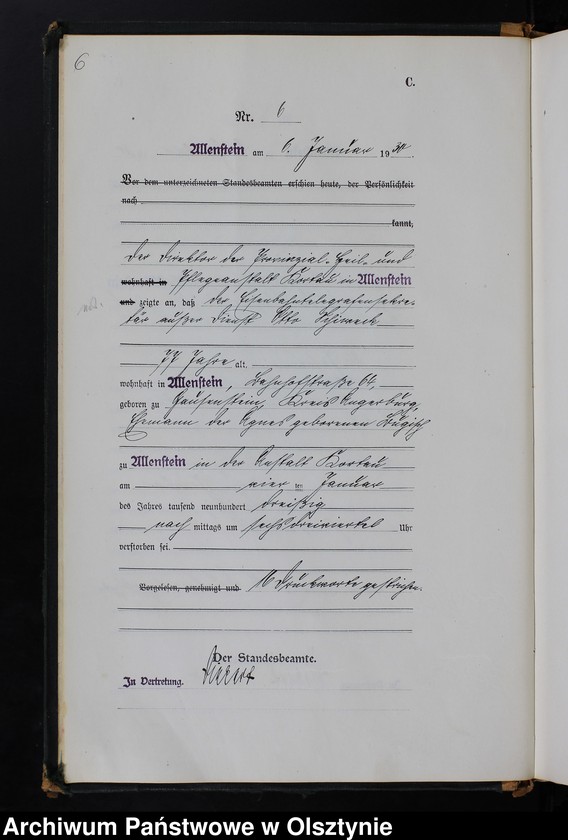 6
C.
Nr. 6
Allenstein am 6. Januar 1930.
Vor dem unterzeichneten Standesbeamten erschien heute, der Persönlichkeit
nach
kannt,
der Direktor der Provinzial-Heil- und
wohnhaft in Pflegeanstalt Kortau in Allenstein
und zeigte an, daß der Eisenbahntelegrafensekre-
tär außer Dienst Otto
77 Jahre alt,
wohnhaft in Allenstein, Bahnhofstraße 64,
geboren zu Kreis Angerburg,
Ehemann der Agnes geborenen
zu Allenstein in der Anstalt Kortau
am vier ten Januar
des Jahres tausend neunhundert dreißig
nach mittags um sechsdreiviertel Uhr
verstorben sei.
Vorgelesen, genehmigt und 16 Druckworte gestrichen.
Der Standesbeamte.
In Vertretung.
Archiwum Państwowe w Olsztynie